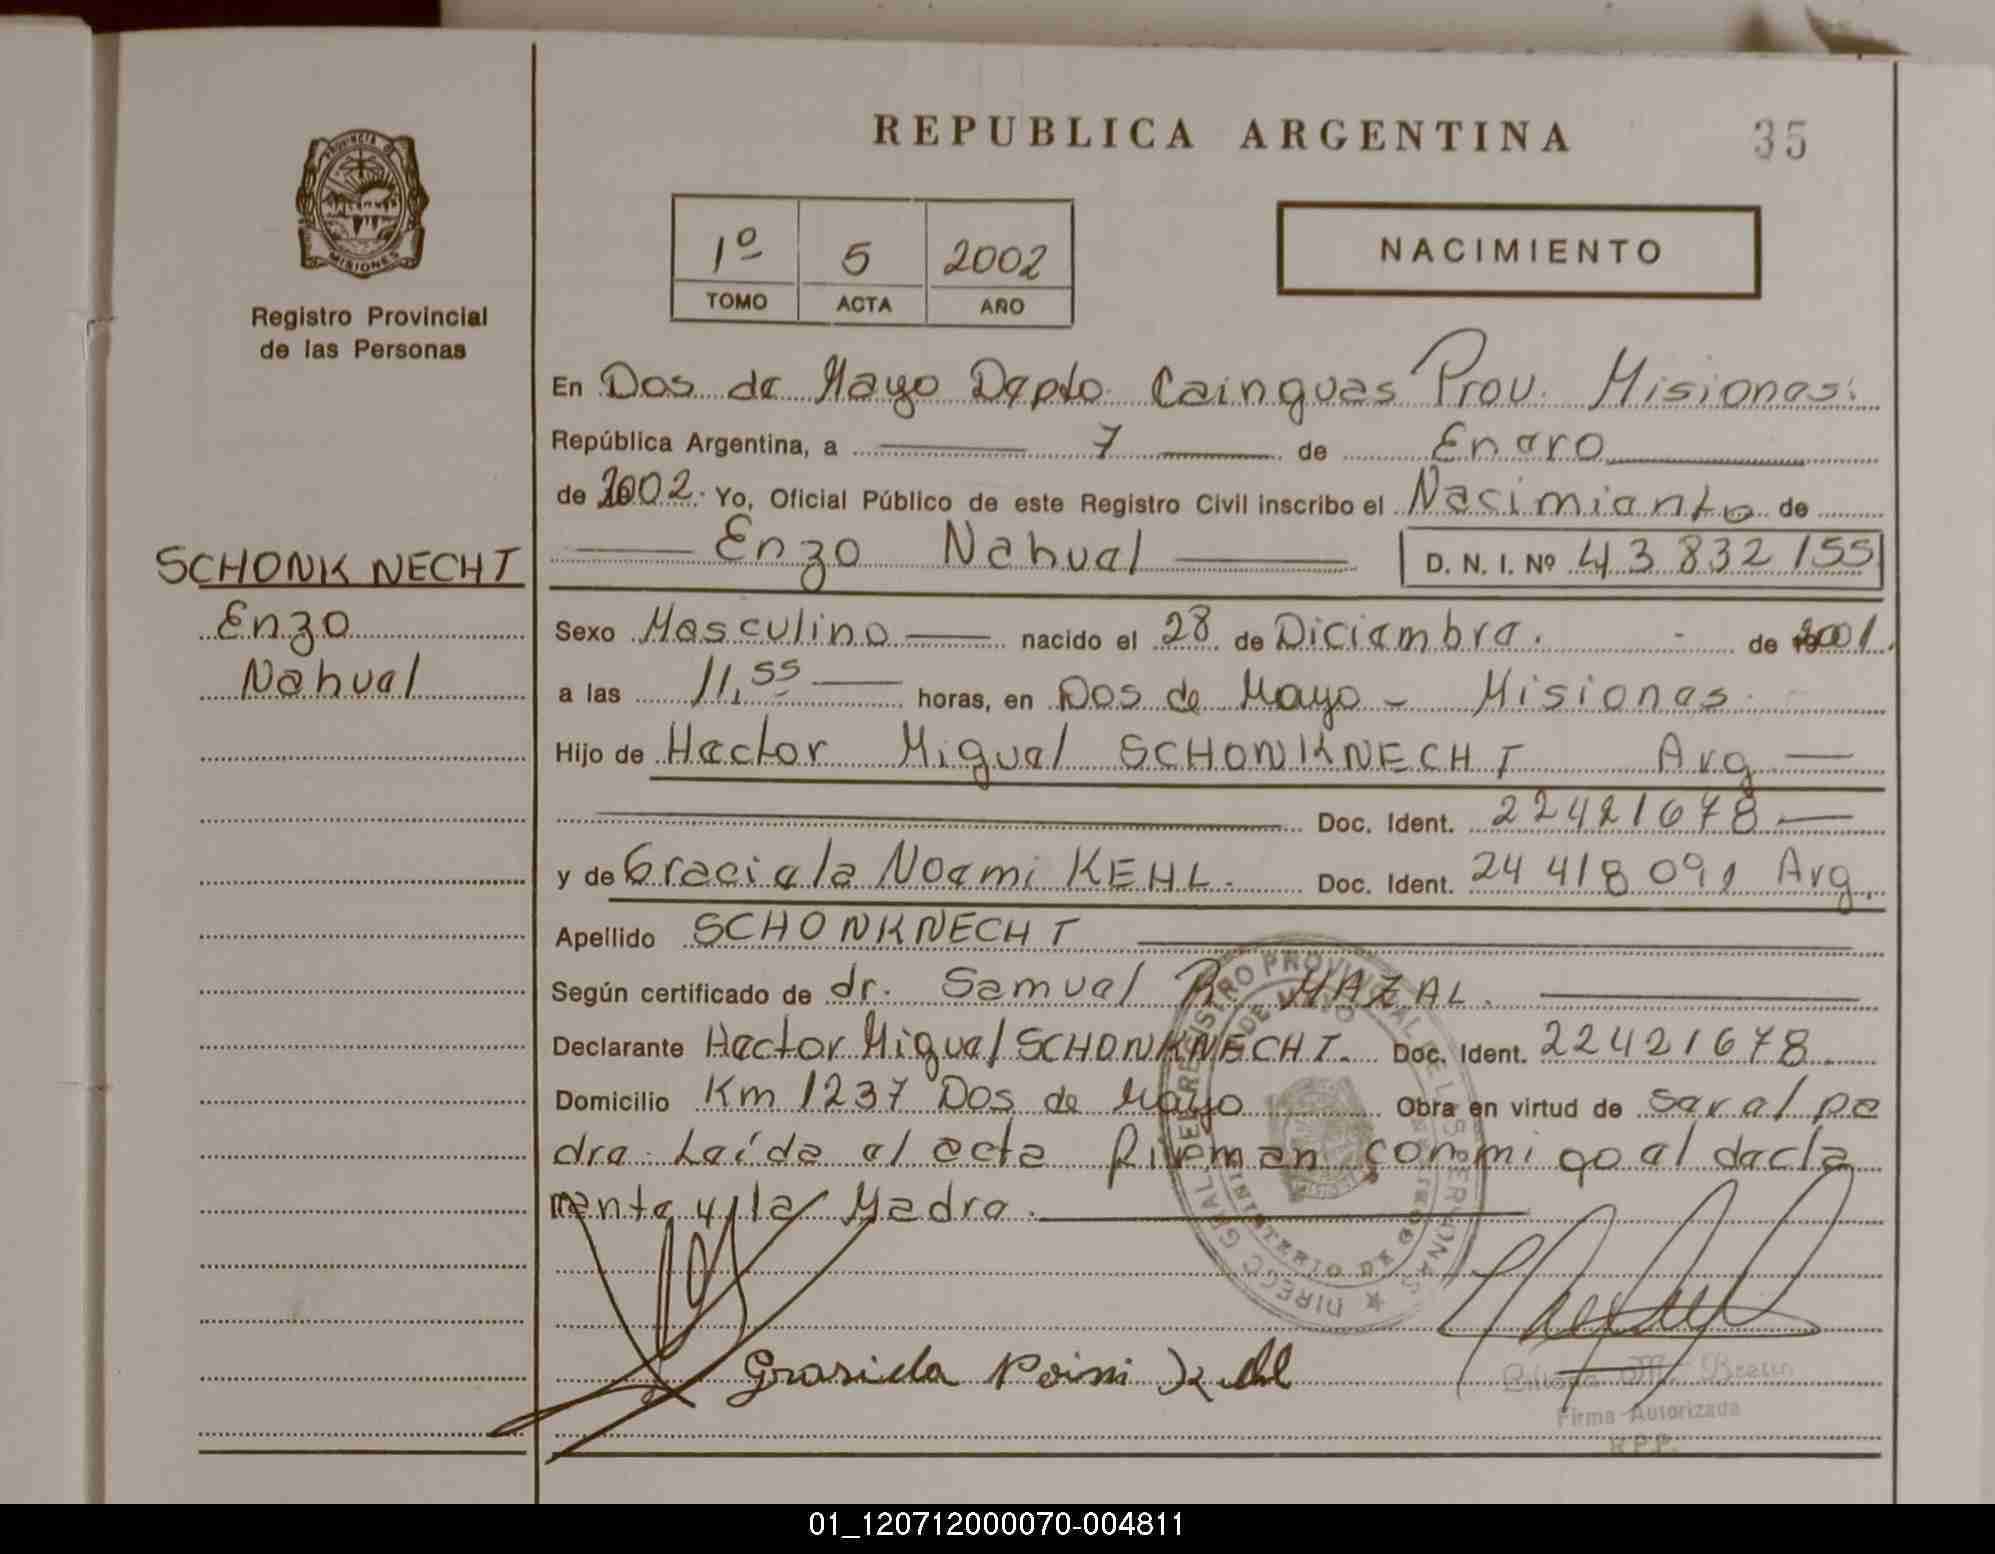 REPUBLICA ARGENTINA
35
PROVINCIA DE
MISIONES
Registro Provincial
de las Personas
1º 5 2002
TOMO ACTA AÑO
NACIMIENTO
En Dos de Mayo Depto. Cainguas Prov. Misiones.
República Argentina, a 7 de Enero
de 2002. Yo, Oficial Público de este Registro Civil inscribo el Nacimiento de
Enzo Nahuel D. N. I. Nº 43 832 155
SCHONKNECHT
Enzo
Nahuel
Sexo Masculino nacido el 28 de Diciembre. de 2001.
a las 11,55 horas, en Dos de Mayo - Misiones
Hijo de Hector Miguel SCHONKNECHT Arg
Doc. Ident. 22421678
y de Graciela Noemi KEHL. Doc. Ident. 24 418 091 Arg.
Apellido SCHONKNECHT
Según certificado de dr. Samuel R. MAZAL.
Declarante Hector Miguel SCHONKNECHT. Doc. Ident. 22421678
Domicilio Km 1237 Dos de Mayo Obra en virtud de ser el pa
dre. Leída el acta firman conmigo el decla
rante y la Madre.
DIRECC. GRAL. DEL REGISTRO PROVINCIAL DE LAS PERSONAS
MINISTERIO DE GOBIERNO
DOS DE MAYO
Grasiela Noimi Kehl
Firma Autorizada
R.P.P.
01_120712000070-004811